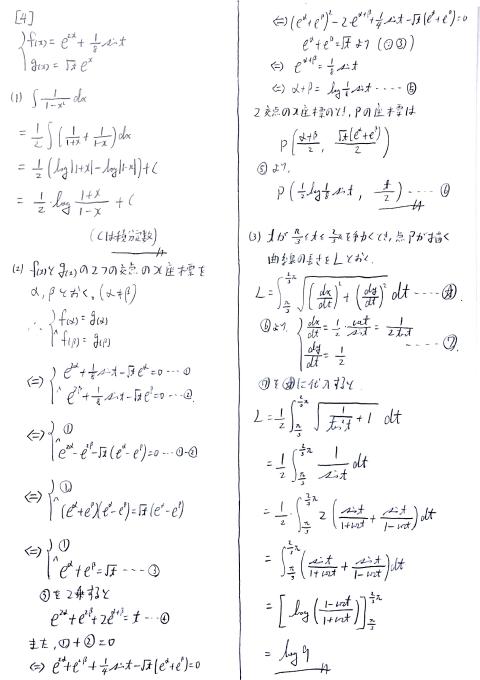 [4]
{ f(x) = e^{2x} + 1/8 sin t
g(x) = √t e^x
(1) ∫ 1/(1-x²) dx
= 1/2 ∫ (1/(1+x) + 1/(1-x)) dx
= 1/2 (log|1+x| - log|1-x|) + C
= 1/2 log (1+x)/(1-x) + C
(Cは積分定数)
(2) f(x)とg(x)の2つの交点のx座標を
α, βとおく。(α≠β)
∴ { f(α) = g(α)
∧ f(β) = g(β)
⇔ { e^{2α} + 1/8 sin t - √t e^α = 0 ‥‥ ①
∧ e^{2β} + 1/8 sin t - √t e^β = 0 ‥‥ ②
⇔ { ①
∧ e^{2α} - e^{2β} - √t (e^α - e^β) = 0 ‥‥ ①-②
⇔ { ①
∧ (e^α + e^β)(e^α - e^β) = √t (e^α - e^β)
⇔ { ①
∧ e^α + e^β = √t ‥‥ ③
③を2乗すると
e^{2α} + e^{2β} + 2e^{α+β} = t ‥‥ ④
また, ① + ② = 0
⇔ e^{2α} + e^{2β} + 1/4 sin t - √t (e^α + e^β) = 0
⇔ (e^α + e^β)² - 2e^{α+β} + 1/4 sin t - √t (e^α + e^β) = 0
e^α + e^β = √t より (∵ ③)
⇔ e^{α+β} = 1/8 sin t
⇔ α+β = log 1/8 sin t ‥‥ ⑤
2交点のx座標のとき, Pの座標は
P( (α+β)/2 , √t(e^α + e^β)/2 )
⑤より,
P( 1/2 log 1/8 sin t , t/2 ) ‥‥ ⑥
(3) tが π/3 ≤ t ≤ 2/3 π を動くとき, 点Pが描く
曲線の長さをLとおく。
L = ∫_{π/3}^{2/3 π} √((dx/dt)² + (dy/dt)²) dt
⑥より { dx/dt = 1/2 · cos t/sin t = 1/(2 tan t)
dy/dt = 1/2 ‥‥ ⑦
L = 1/2 ∫_{π/3}^{2/3 π} √(1/tan² t + 1) dt
= 1/2 ∫_{π/3}^{2/3 π} 1/sin t dt
= 1/2 · ∫_{π/3}^{2/3 π} 2 (sin t/(1+cos t) + sin t/(1-cos t)) dt
= ∫_{π/3}^{2/3 π} (sin t/(1+cos t) + sin t/(1-cos t)) dt
= [ log ((1-cos t)/(1+cos t)) ]_{π/3}^{2/3 π}
= log 9